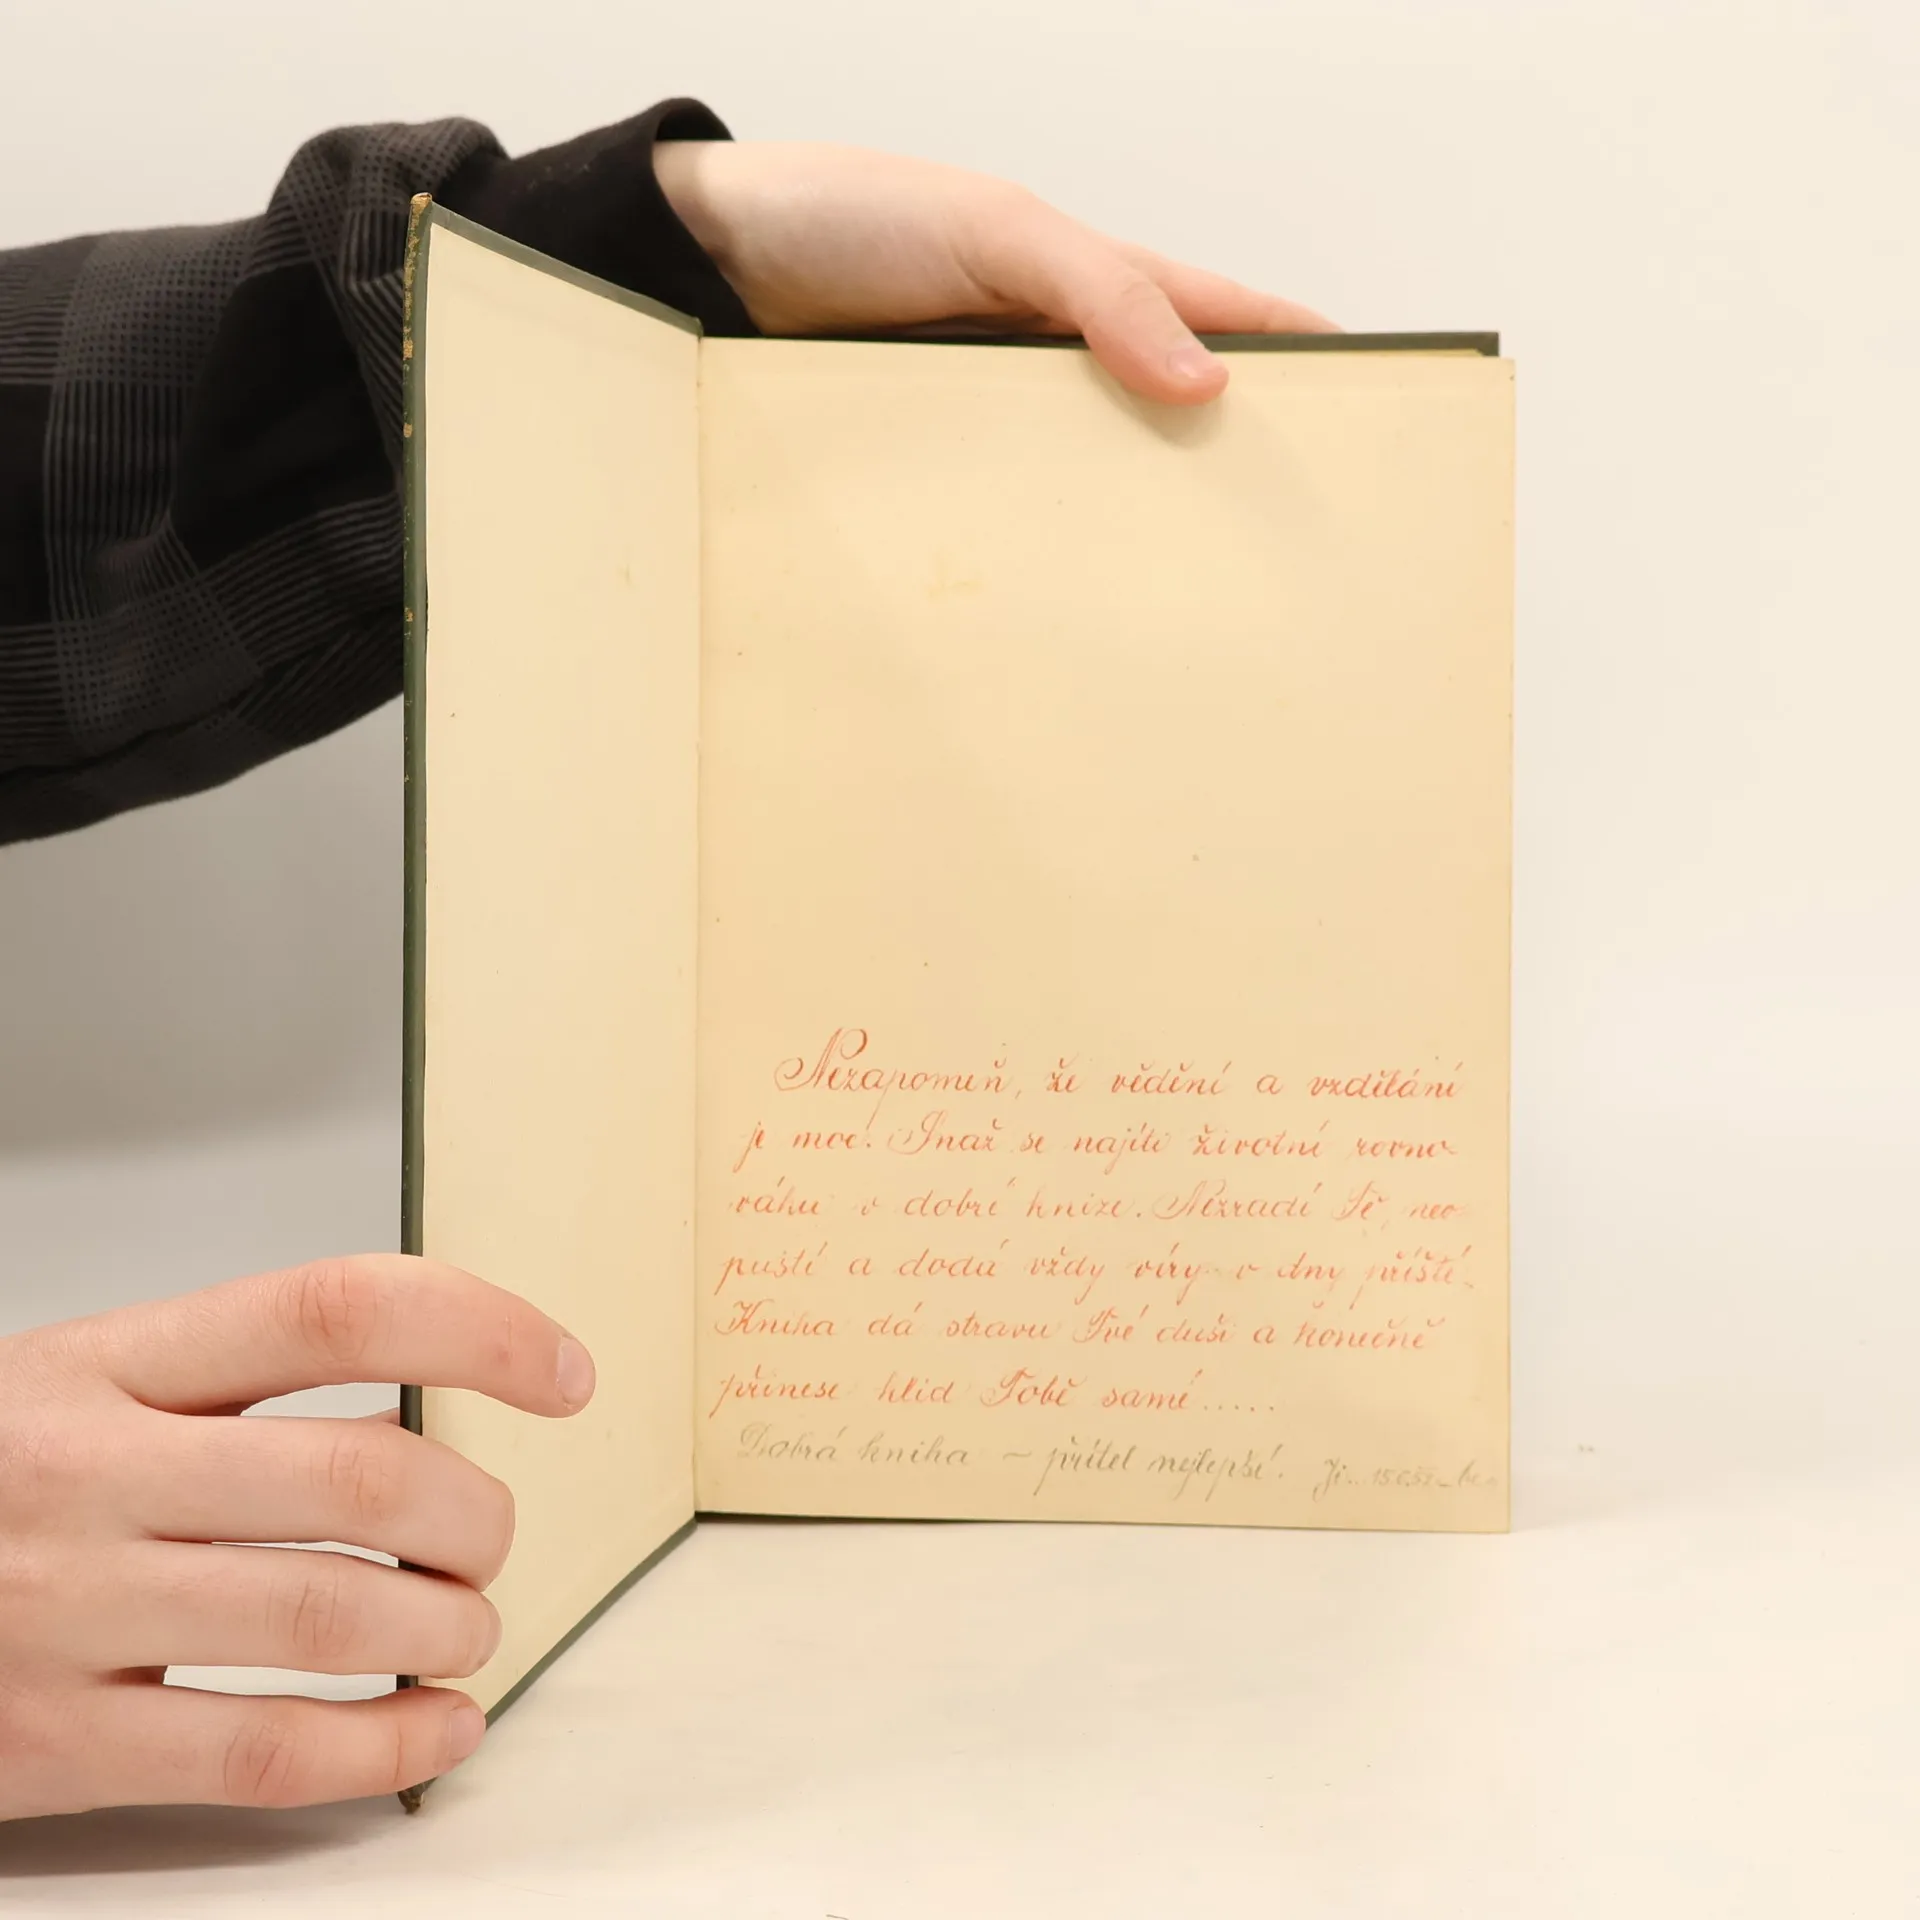 Nezapomeň, že vědění a vzdělání
je moc. Snaž se najíti životní rovno-
váhu v dobré knize. Nezradí Tě, neo-
pustí a dodá vždy víry v dny příští.
Kniha dá stravu Tvé duši a konečně
přinese klid Tobě samé.....
Dobrá kniha ~ přítel nejlepší. Ji...